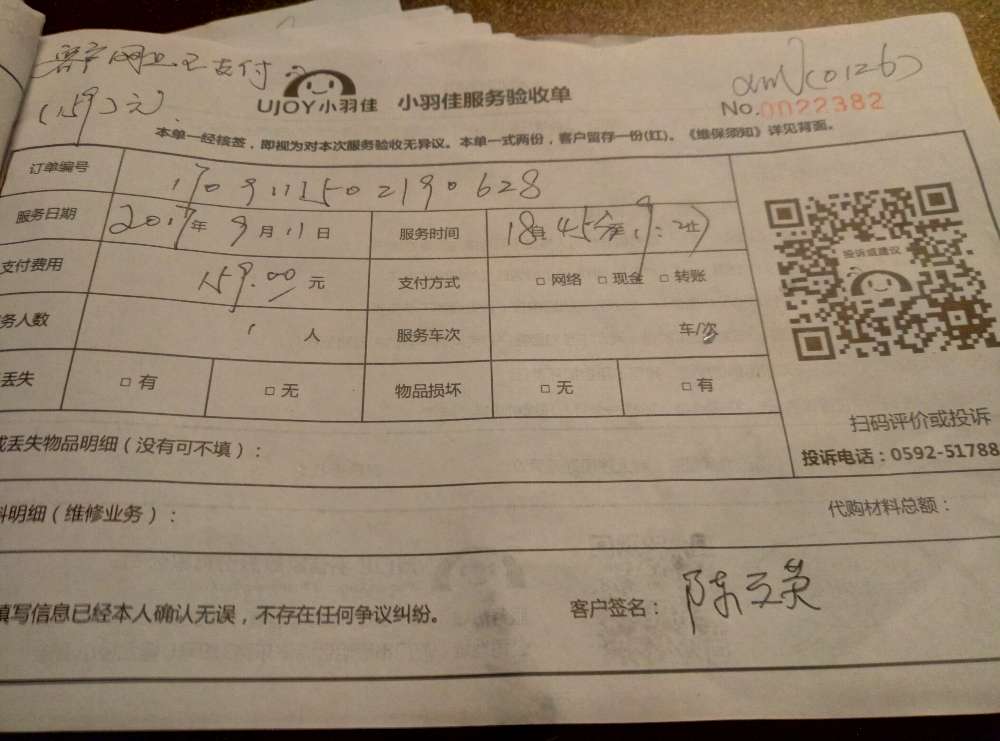 客户网上已支付
(159)元
UJOY小羽佳 小羽佳服务验收单
(0126)
No.0022382
本单一经核签，即视为对本次服务验收无异议。本单一式两份，客户留存一份(红)。《维保须知》详见背面。
订单编号 1709111502190628
服务日期 2017年9月11日 服务时间 18 45分
支付费用 159.00元 支付方式 □网络 □现金 □转账
务人数 1人 服务车次 车/次
丢失 □有 □无 物品损坏 □无 □有
投诉或建议
扫码评价或投诉
投诉电话：0592-51788
或丢失物品明细（没有可不填）：
料明细（维修业务）： 代购材料总额：
填写信息已经本人确认无误，不存在任何争议纠纷。 客户签名：陈立英